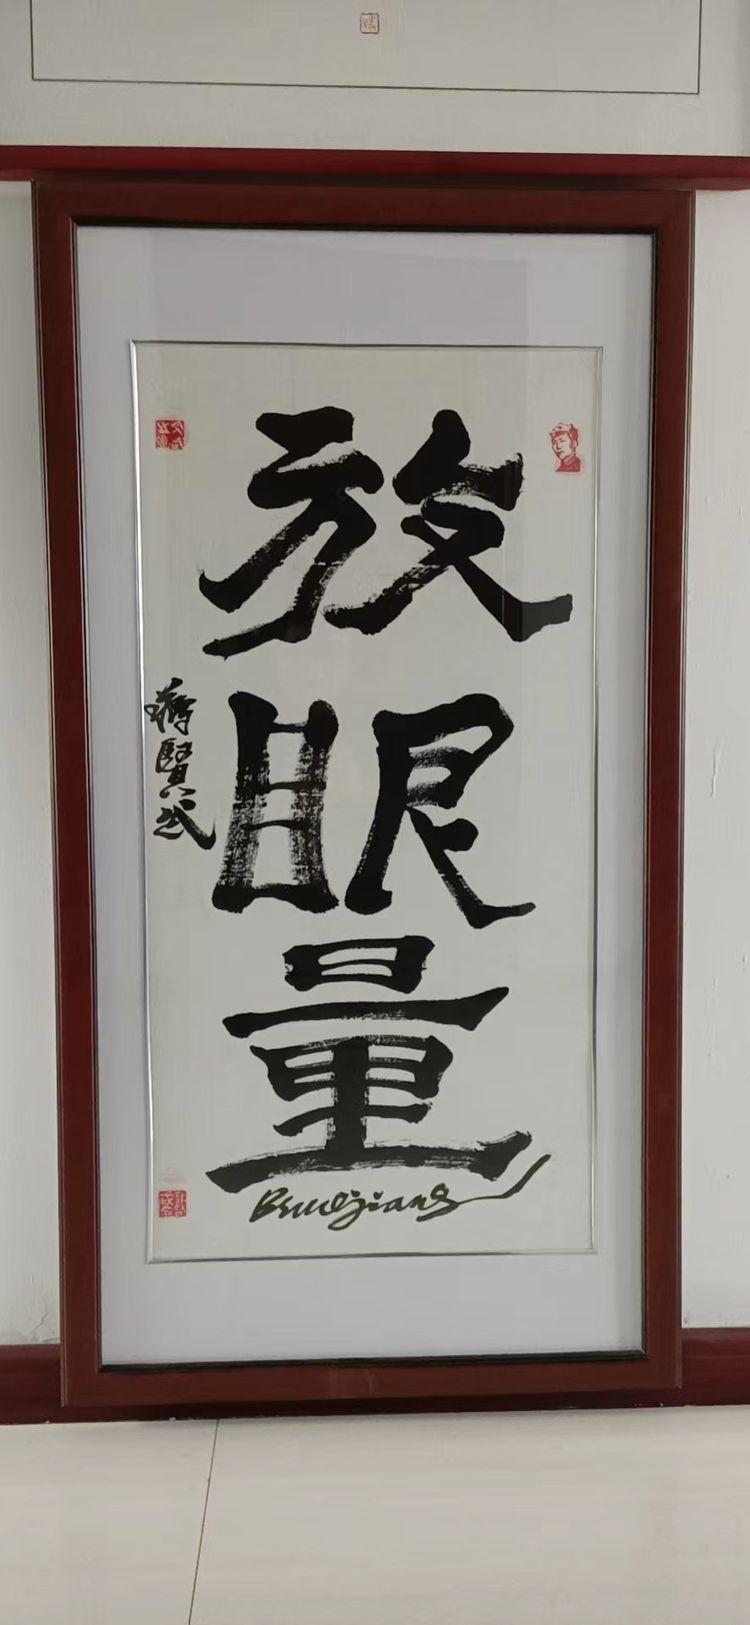 放眼量
蒋賢武
Brucejiang